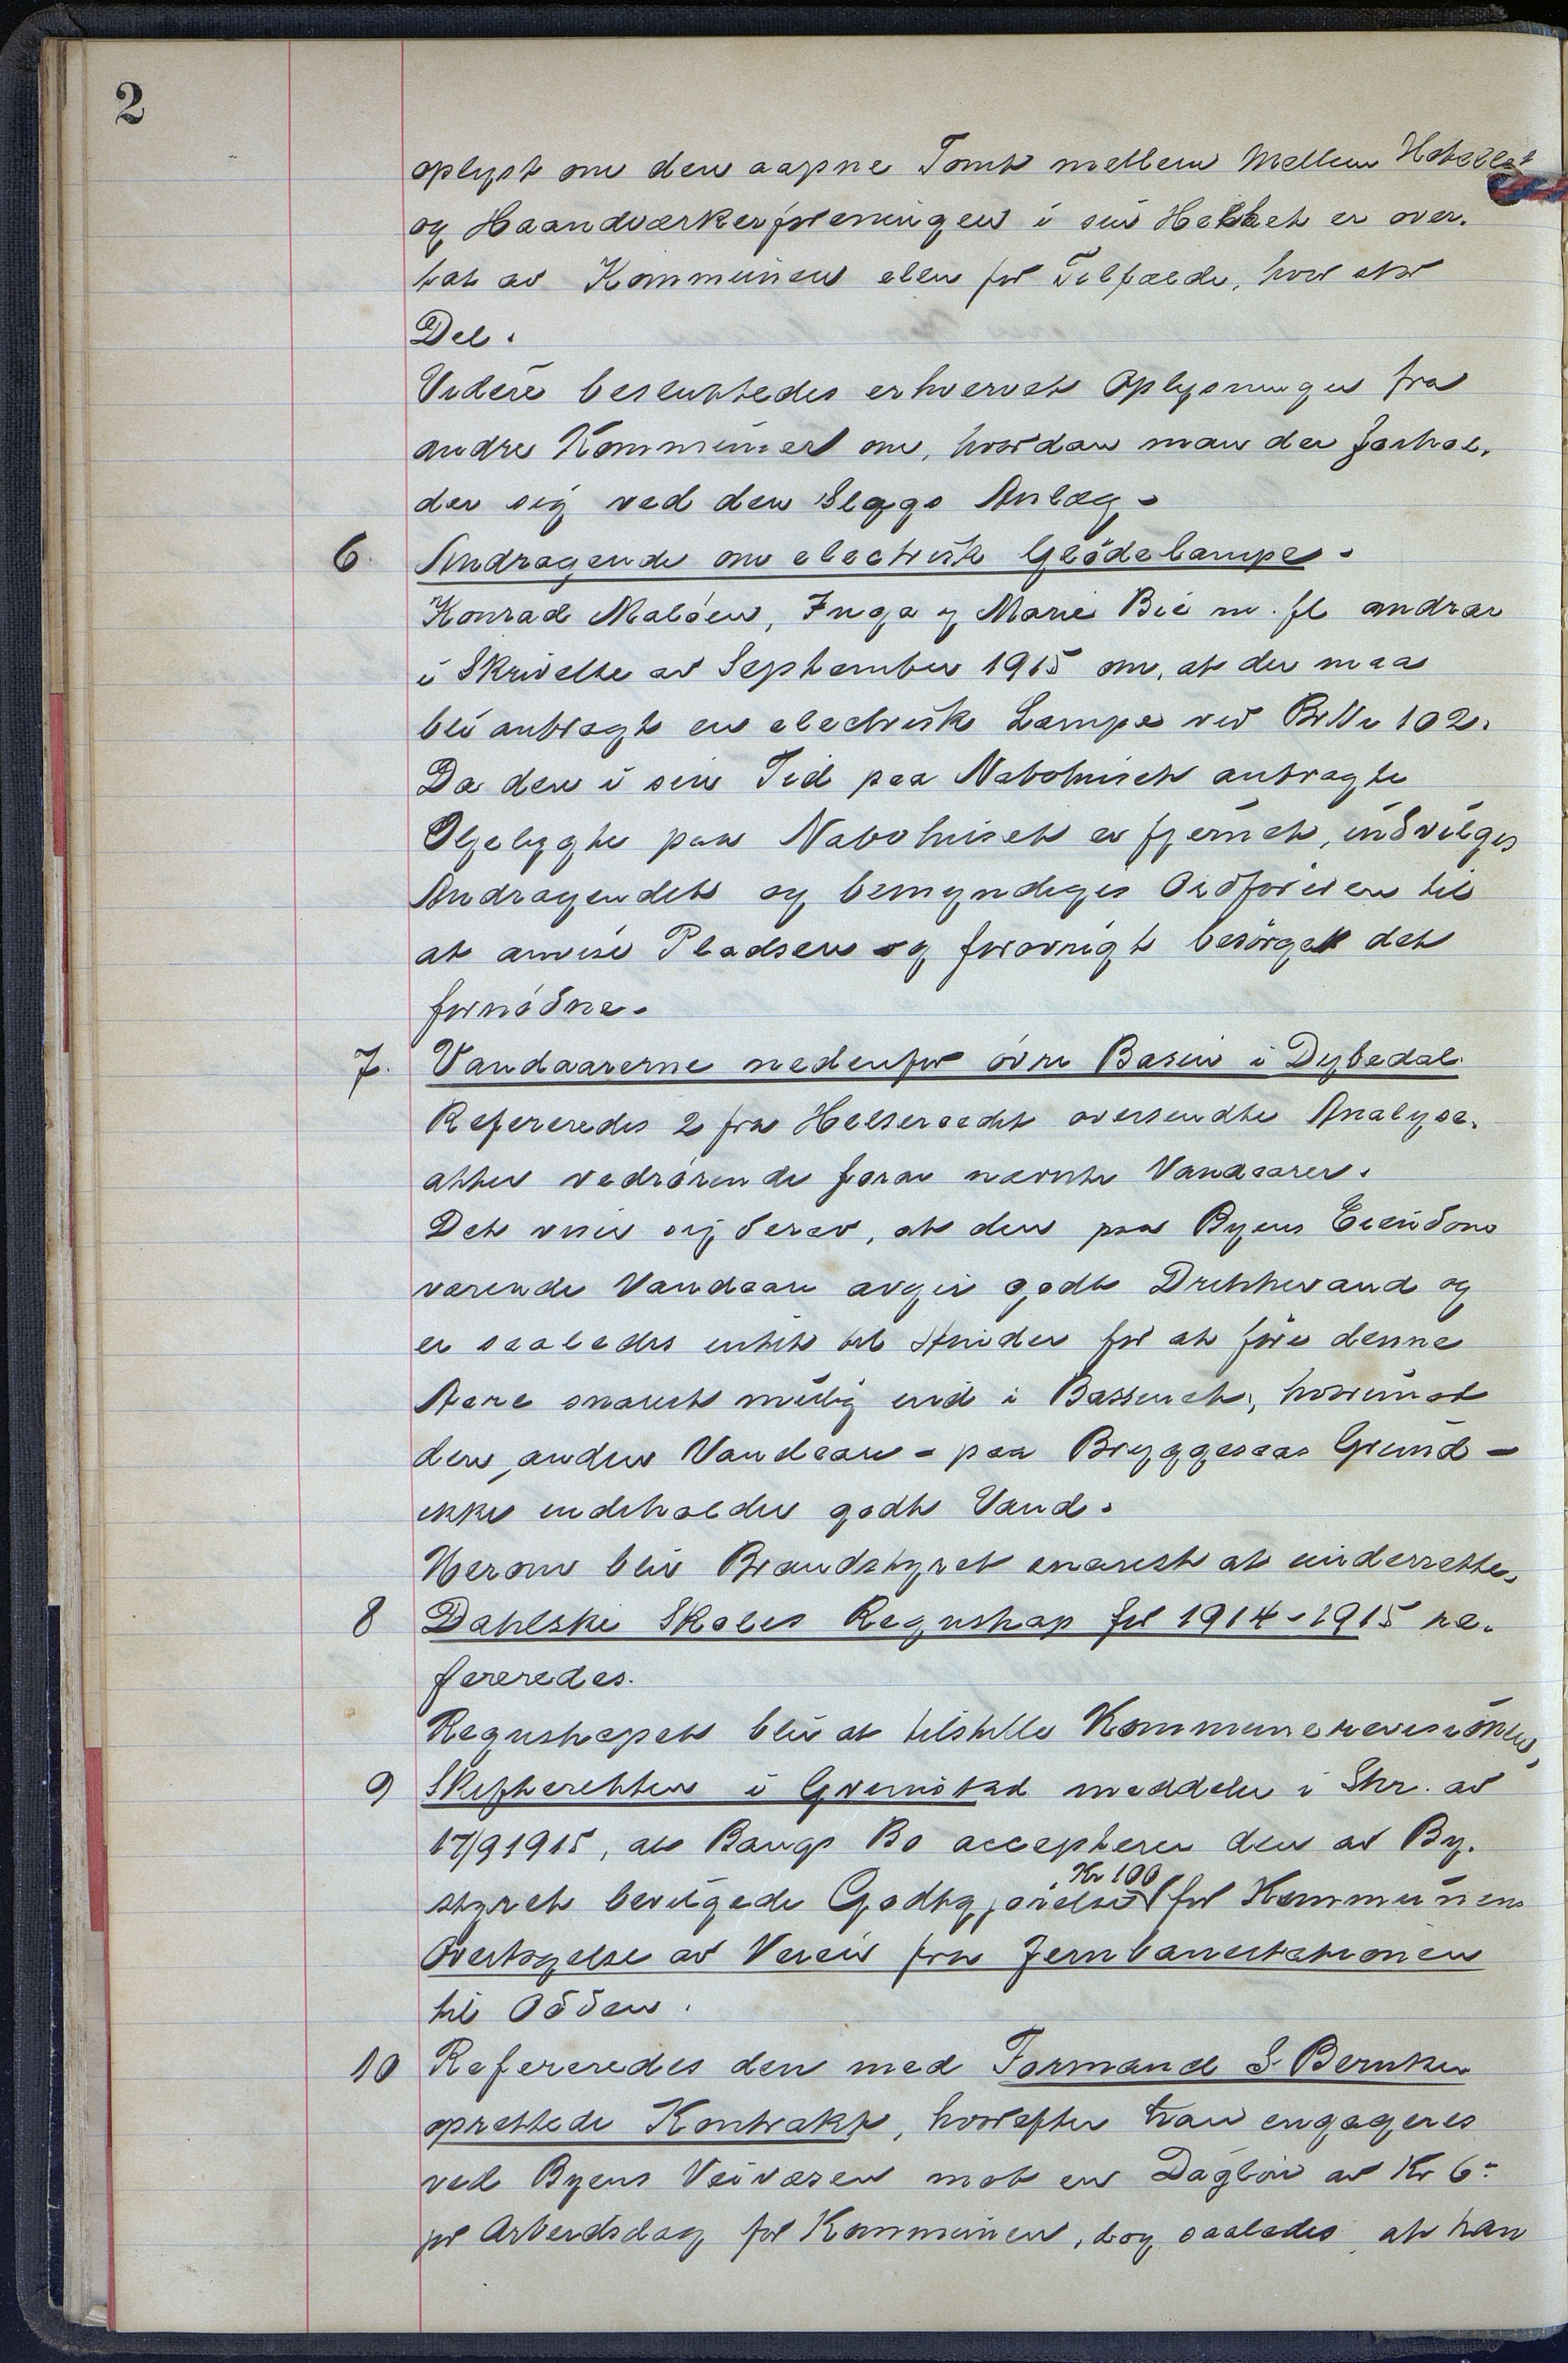 2
oplyst om den aapne Tomt mellem Mellem Hotellet
og Haandværkerforeningen i sin Helhet er over-
tat av Kommunen eller for Tilfælde, hvor stor
Del.
Videre besluttedes erhvervet Oplysninger fra
andre Kommuner om, hvordan man der forhol-
der sig ved den Slags Anlæg.
6. Andragende om electrisk Glödelampe.
Konrad Maløen, Inga og Marie Bie m. fl andrar
i Skrivelse av September 1915 om, at der maa
bli anbragt en electrisk Lampe ved Br No 102.
Da den i sin Tid paa Nabohuset anbragte
Oljelygte paa Nabohuset er fjernet, indvilges
Andragendet og bemyndiges Ordföreren til
at anvise Pladsen og forövrigt besörget det
fornödne.
7. Vandaarerne nedenfor övre Basin i Dybedal.
Refereredes 2 fra Helseraadet oversendte Analyse-
atter vedrörende foran nævnte Vandaarer.
Det viser sig derav, at den paa Byens Eiendom
værende Vandaare avgir godt Drikkevand og
er saaledes intet til Hinder for at före denne
Aare snarest mulig ind i Bassenet, hvorimot
den anden Vandaare - paa Bryggesaas Grund -
ikke indeholder godt Vand.
Herom blir Brandstyret snarest at underrette.
8 Dahlske Skoles Regnskap for 1914-1915 re-
fereredes.
Regnskapet blir at tilstille Kommunerevisionen.
9 Skifteretten i Grimstad meddeler i Skr. av
17/9 1915, at Bangs Bo accepterer den av By-
styret bevilgede Godtgjörelse Kr 100 for Kommunens
Overtagelse av Veien fra Jernbanestationen
til Odden.
10 Refereredes den med Formand S. Berntsen
oprettede Kontrakt, hvorefter han engageres
ved Byens Veivæsen mot en Daglön av Kr 6-
pr Arbeidsdag for Kommunen, dog saaledes at han